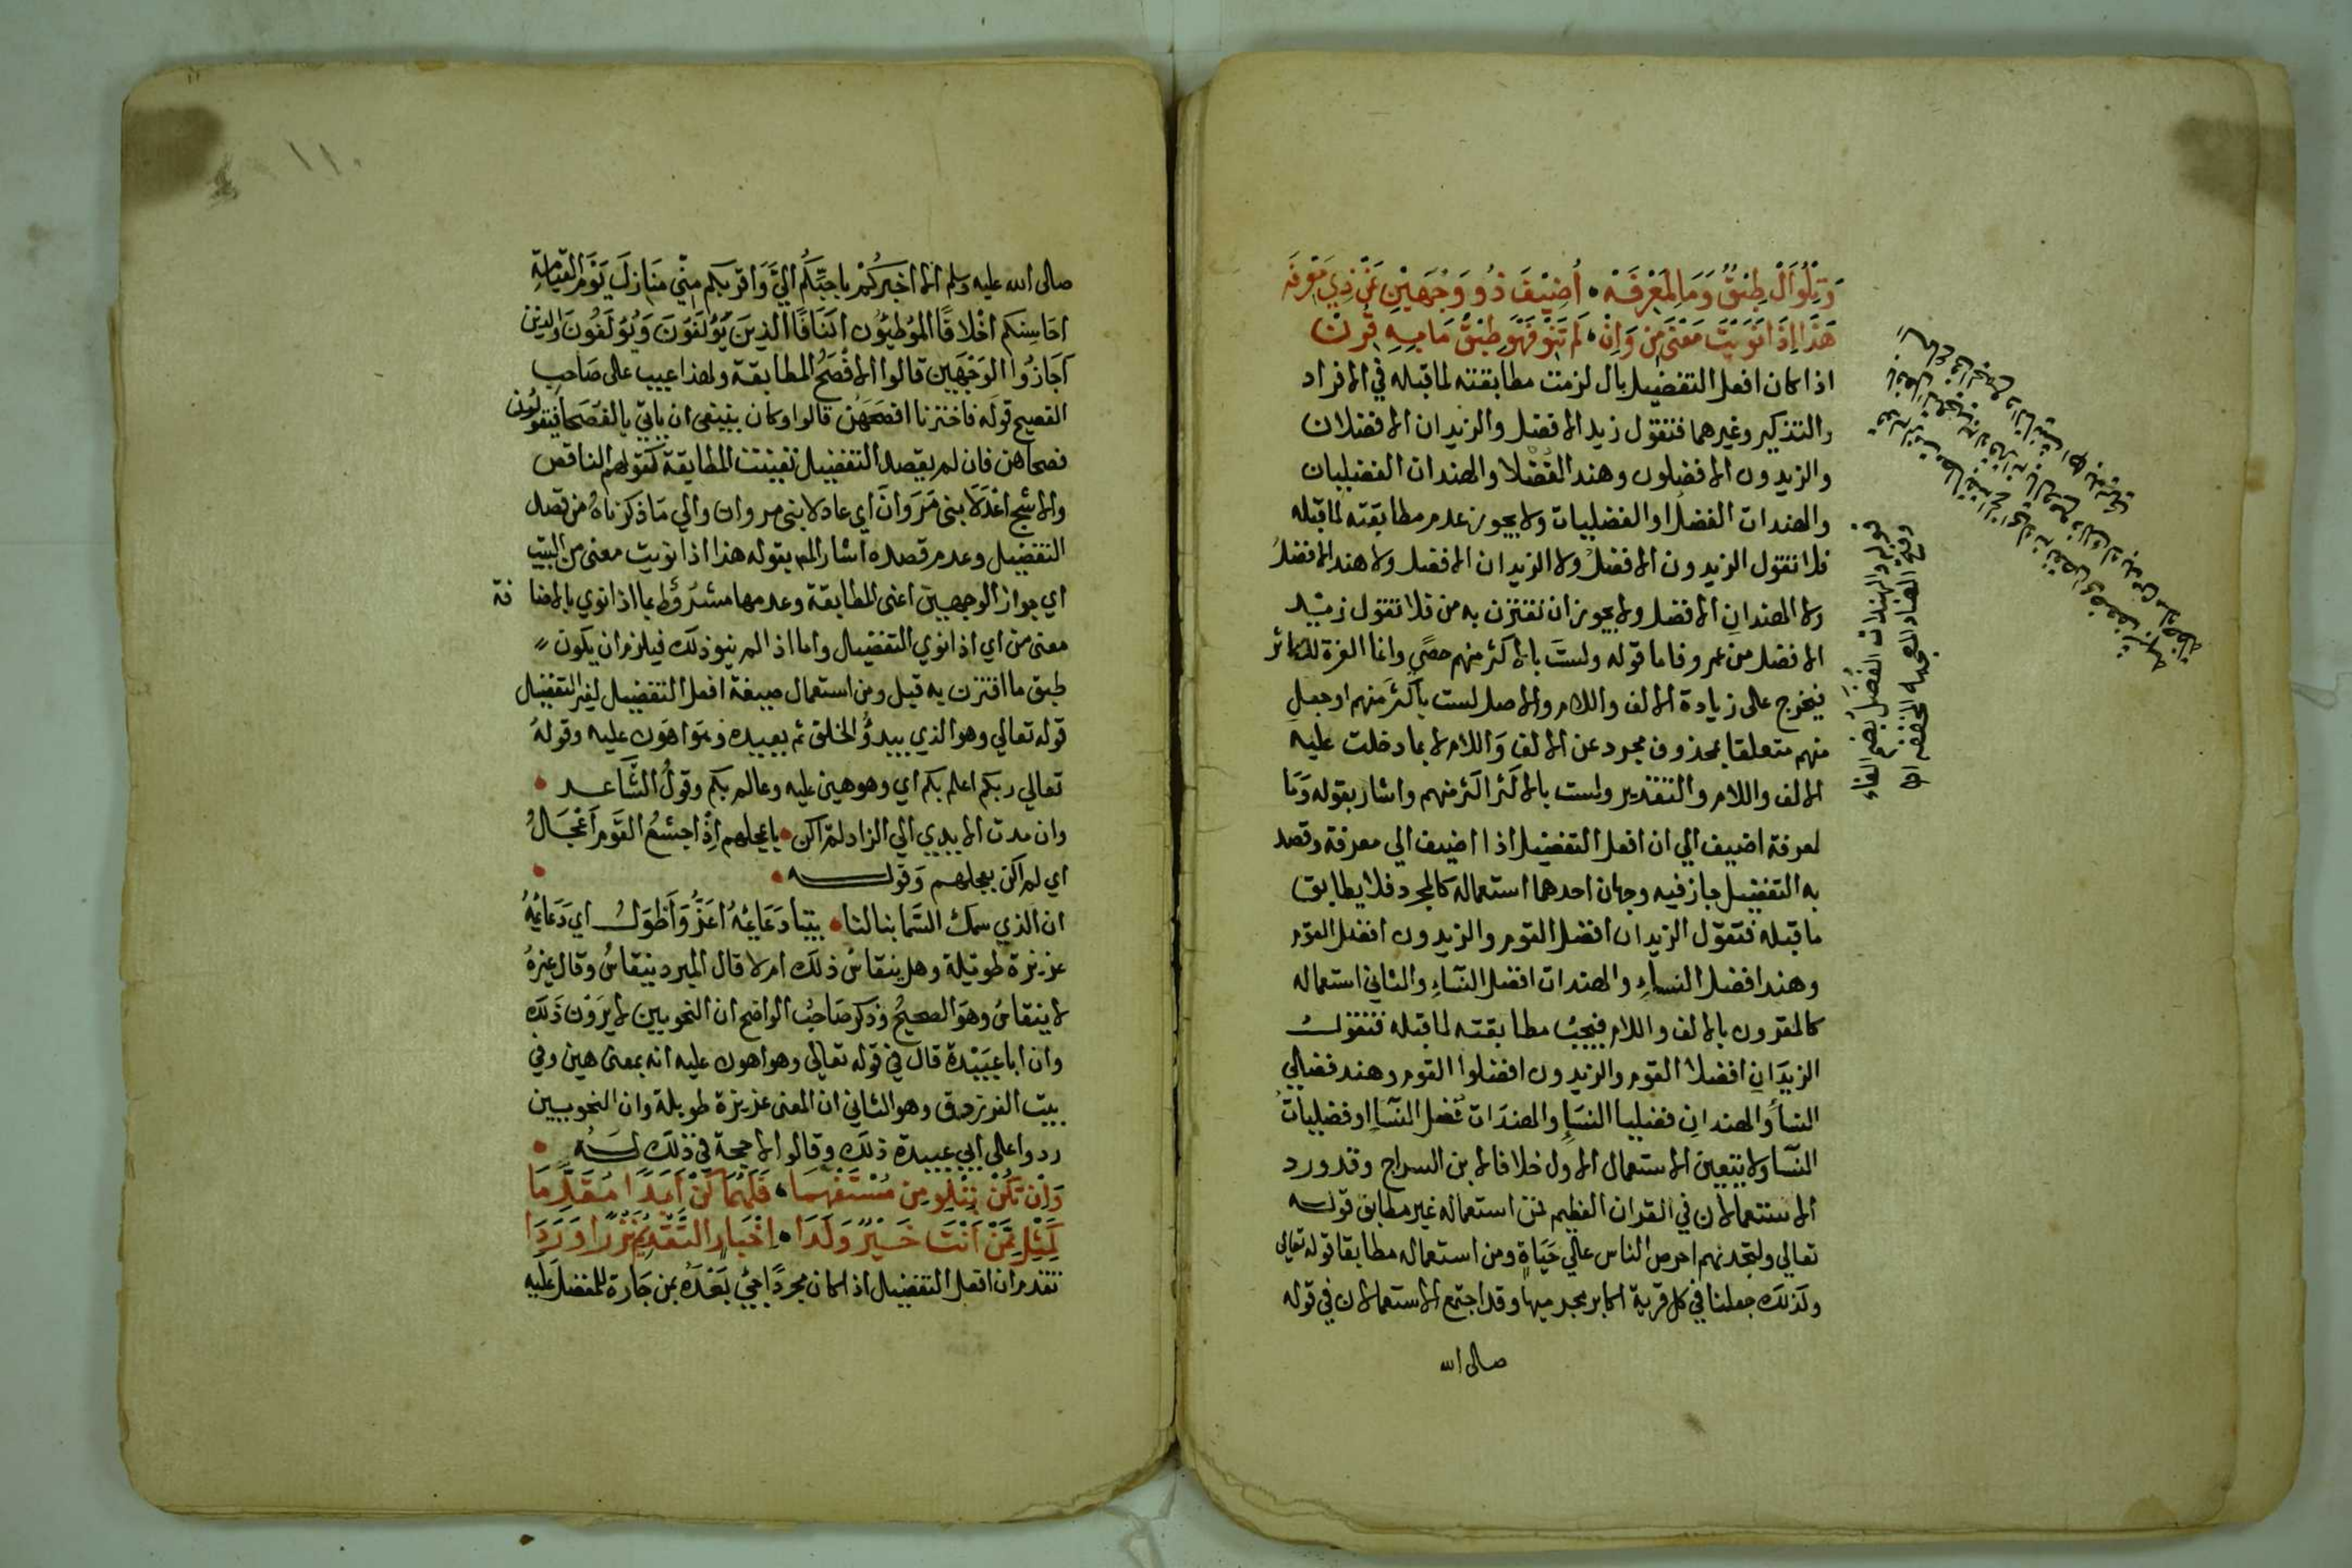 وَتِلْوُ اَلْ طِبْقٌ وَمَا لِمَعْرِفَهْ • أُضِيْفَ ذُو وَجْهَيْنِ عَنْ ذِي مَعْرِفَه
هَذَا اِذَا نَوَيْتَ مَعْنَى مِنْ وَاِنْ • لَمْ تَنْوِ فَهْوَ طِبْقُ مَا بِهِ قُرِنْ
اذا كان افعل التفضيل بال لزمت مطابقته لما قبله في الافراد
والتذكير وغيرهما فتقول زيد الافضل والزيدان الافضلان
والزيدون الافضلون وهند الفضلا والهندان الفضليان
والهندات الفضل او الفضليات ولا يجوز عدم مطابقته لما قبله
فلا تقول الزيدون الافضل ولا الزيدان الافضل ولا هند الافضل
ولا الهندان الافضل ولا يجوز ان تقترن به من فلا تقول زيد
الافضل من عمرو فاما قوله ولست بالاكثر منهم حصي وانما العزة للكاثر
فيخرج على زيادة الالف واللام والاصل لست باكثر منهم او جعل
منهم متعلقا بمحذوف مجرد عن الالف واللام لا بما دخلت عليه
الالف واللام والتقدير ولست بالاكثر اكثر منهم واشار بقوله وَمَا
لمعرفة اضيف الي ان افعل التفضيل اذا اضيف الي معرفة وقصد
به التفضيل جاز فيه وجهان احدهما استعماله كالمجرد فلا يطابق
ما قبله فتقول الزيدان افضل القوم والزيدون افضل القوم
وهند افضل النساء والهندات افضل النساء والثاني استعماله
كالمقرون بالالف واللام فيجب مطابقته لما قبله فتقول
الزيدَانِ افضلا القوم والزيدون افضلوا القوم وهند فضلي
النسا والهندان فضليا النسا والهندات فضل النسا او فضليات
النسا ولا يتعين الاستعمال الاول خلافا لابن السراج وقد ورد
الاستعمالان في القران العظيم فمن استعماله غير مطابق قوله
تعالي ولتجدنهم احرص الناس على حَيَاةٍ ومن استعماله مطابقا قوله تعالي
وكذلك جعلنا في كل قرية اكابر مجرميها وقد اجتمع الاستعمالان في قوله
صلى الله
قوله والهندات الفُضَل بضم الفاء
وفتح الضاد المعجمه المخففه اه
١١٠
صلى الله عليه وسلم الا اخبركم باحبكم اليَّ وَاقربكم منّي مَنَازلَ يَوْمَ القيَامةِ
احَاسِنكم اخْلاقًا الموُطئوُن اكنَافًا الذينَ يَؤْلَفوَنَ وَيُؤْلَفُونَ والذين
اَجَازُوا الوَجْهَين قالوا الافصَحُ المطابقة ولهذا عيب على صَاحب
الفصيح قولَه فاخترنا افصَحَهُن قالوا وكان ينبغي ان ياتي بالفُصَحا فيَقُولُون
فصحاهن فان لم يقصد التفضيل تعينت المطابقة كقولهم الناقص
والاشج اعدَلا بني مَرَوانَ اي عادلا بني مروان والي مَا ذكرناهُ من قصد
التفضيل وعدم قصده اشار المص بقوله هذا اذا نويت معني من البيت
اي جواز الوجهين اعني المطابقة وعدمها مشرُوط بما اذا نوي بالاضافة
معني من اي اذا نوي التفضيل واما اذ الم ينو ذلك فيلزم ان يكون
طبق ما اقترن به قيل ومن استعمال صيغة افعل التفضيل لغير التفضيل
قوله تعالي وهو الذي يبدؤُ الخلق ثم يعيده وَهُوَ اهوَن عليه وقولهُ
تعالي ربكم اعلم بكم اي وهو هين عليه وعالم بكم وقولُ الشَّاعـــد •
وان مدت الايدي الي الزاد لم اكن • باعجلهم اِذْ اجشعُ القَوم اَعْجَــالُ
اي لم اكن بعجلهم وَقولـــه •
ان الذي سمك السَّما بنا لنا • بيتا دَعَايمُهُ اعَزُّ وَأَطْوَلــُ اي دَعَايمُهُ
عزيزة طويلة وهل ينقاسُ ذلك ام لا قال المبرد ينقاسُ وقال غيرهُ
لا ينقاسُ وهوَ الصحيحُ وَذكر صَاحِبُ الواضح ان النحويين لا يَرَوْن ذَلكَ
وان ابا عبَيْدة قال في قوله تعالي وهو اهون عليه انه بمعني هين وفي
بيت الفرزدق وهو الثاني ان المعني عزيزة طويلة وان النحويين
ردوا على ابي عبيدة ذلك وقالوا لا حجة في ذلك لَــه •
وَاِنْ تَكُنْ بِتِلْوِ مِنْ مُسْتَفْهِمَا • فَلَهُمَا كُنْ اَبَدًا مُقَدِّمَا
كَمِثْلِ مِمَّنْ اَنْتَ خَيْرٌ وَلَدَا • اِخْبَارٍ التَّقْدِيمُ نَزْرًا وَرَدَا
تقدم ان افعل التفضيل اذا كان مجردًا جيْ بَعْدَهُ بمن جَارة للمفضل عَليه